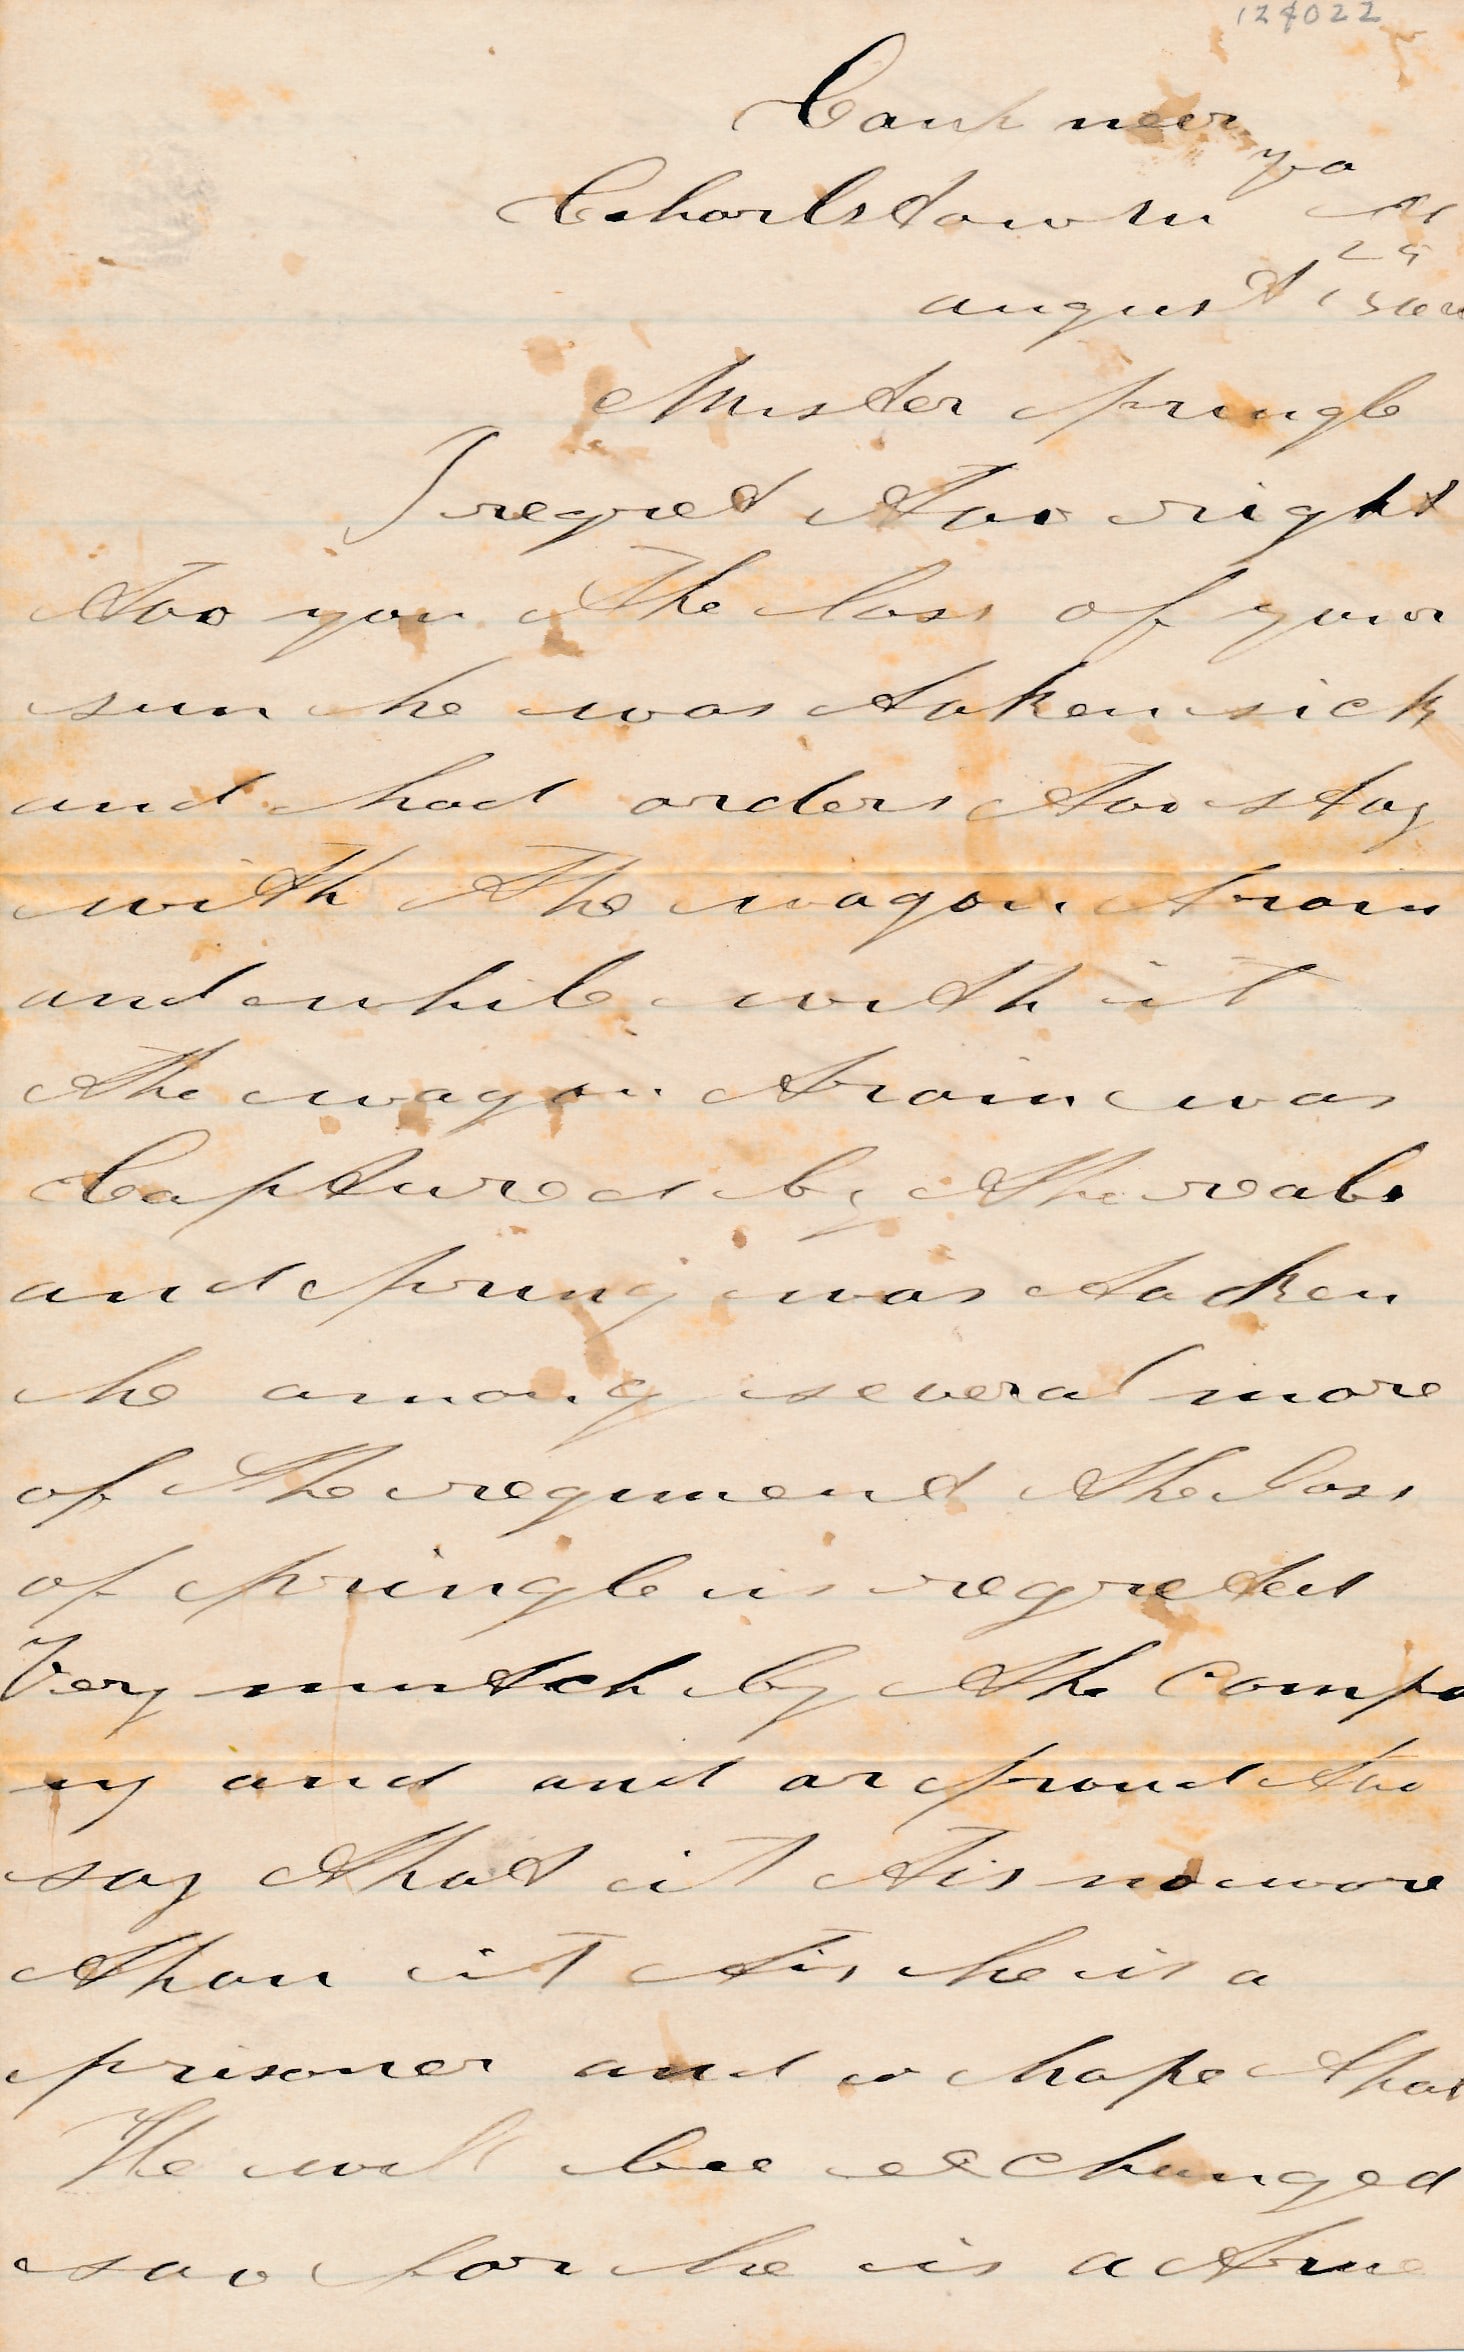 124022
Camp near
va
Charlstown
25
august
Mister pringle
I regret too right
too you The loss of your
sun he was taken sick
and had orders too stay
with The wagon train
and while with it
The wagon train was
Captured by The reabs
and pring was tacken
he among several more
of The regument The loss
of pringle is regreted
Very mutch by The compa
ny and and ar proud too
say That it tis no wors
Than it tis he is a
prisoner and hope that
He will bee exchanged
soo for he is a true